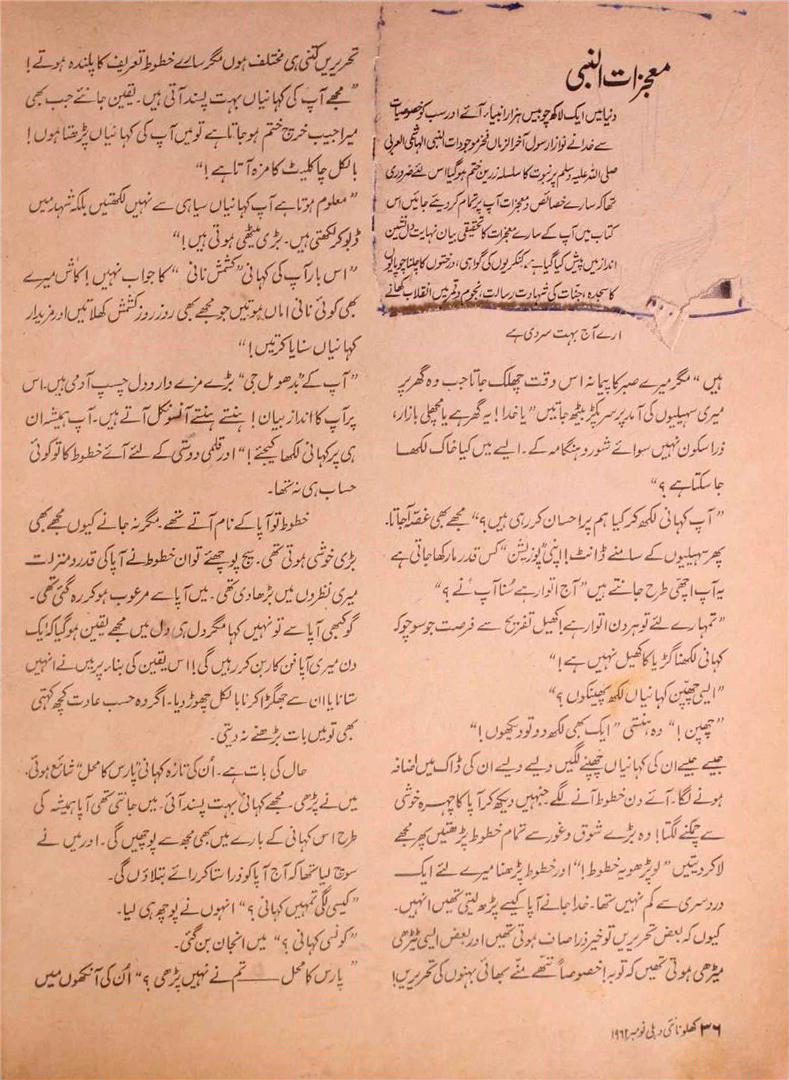 معجزات النبی
دنیا میں ایک لاکھ چوبیس ہزار انبیاء آئے اور سب کو خصوصیات
سے خدا نے نوازا رسول آخر الزماں فخر موجودات النبی الہاشمی العربی
صلی اللہ علیہ وسلم پر نبوت کا سلسلہ زریں ختم ہوگیا اس لئے ضروری
تھا کہ سارے خصائص و معجزات آپ پر تمام کردیئے جائیں اس
کتاب میں آپ کے سارے معجزات کا تحقیقی بیان نہایت دل نشین
انداز میں پیش کیا گیا ہے۔ کنکریوں کی گواہی، درختوں کا چلنا چوپایوں
کا سجدہ، جنات کی شہادت رسالت، نجوم و قمر میں انقلاب کھانے
ارے آج بہت سردی ہے
ہیں“ مگر میرے صبر کا پیمانہ اس وقت چھلک جاتا جب وہ گھر پر
میری سہیلیوں کی آمد پر سر پکڑ بیٹھ جاتیں ”یا خدا! یہ گھر ہے یا مچھلی بازار،
ذرا سکون نہیں سوائے شور و ہنگامہ کے۔ ایسے میں کیا خاک لکھا
جا سکتا ہے؟“
”آپ کہانی لکھ کر کیا ہم پر احسان کر رہی ہیں؟“ مجھے بھی غصّہ آجاتا۔
پھر سہیلیوں کے سامنے ڈانٹ! اپنی ”پوزیشن“ کس قدر مار کھا جاتی ہے
یہ آپ اچھی طرح جانتے ہیں ”آج اتوار ہے سُنا آپ نے؟“
”تمہارے لئے تو ہر دن اتوار ہے! کھیل تفریح سے فرصت جو سوچو کہ
کہانی لکھنا گڑیا کا کھیل نہیں ہے!“
”ایسی چھپّن کہانیاں لکھ پھینکوں؟“
”چھپن!“ وہ ہنستی ”ایک بھی لکھ دو تو دیکھوں!“
جیسے جیسے ان کی کہانیاں چھپنے لگیں ویسے ویسے ان کی ڈاک میں اضافہ
ہونے لگا۔ آئے دن خطوط آنے لگے۔ جنہیں دیکھ کر آپا کا چہرہ خوشی
سے چمکنے لگتا! وہ بڑے شوق و غور سے تمام خطوط پڑھتیں پھر مجھے
لا کر دیتیں ”لو پڑھو یہ خطوط!“ اور خطوط پڑھنا میرے لئے ایک
درد سری سے کم نہیں تھا۔ خدا جانے آپا کیسے پڑھ لیتی تھیں انہیں۔
کیوں کہ بعض تحریریں تو خیر ذرا صاف ہوتی تھیں اور بعض ایسی ٹیڑھی
میڑھی ہوتی تھیں کہ توبہ! خصوصاً ننّھے منّے بھائی بہنوں کی تحریریں!
تحریریں کتنی ہی مختلف ہوں مگر سارے خطوط تعریف کا پلندہ ہوتے!
”مجھے آپ کی کہانیاں بہت پسند آتی ہیں۔ یقین جانئے جب بھی
میرا جیب خرچ ختم ہو جاتا ہے تو میں آپ کی کہانیاں پڑھتا ہوں!
بالکل چاکلیٹ کا مزہ آتا ہے!“
”معلوم ہوتا ہے آپ کہانیاں سیاہی سے نہیں لکھتیں بلکہ شہد میں
ڈبو کر لکھتی ہیں۔ بڑی میٹھی ہوتی ہیں!“
”اس بار آپ کی کہانی ”کشمش نانی“ کا جواب نہیں! کاش میرے
بھی کوئی نانی اماں ہوتیں جو مجھے بھی روز روز کشمش کھلاتیں اور مزیدار
کہانیاں سنایا کرتیں!“
”آپ کے ”بدھو مل جی“ بڑے مزے دار و دل چسپ آدمی ہیں۔ اس
پر آپ کا انداز بیان! ہنستے ہنستے آنسو نکل آتے ہیں۔ آپ ہمیشہ ان
ہی پر کہانی لکھا کیجئے!“ اور قلمی دوستی کے لئے آئے خطوط کا تو کوئی
حساب ہی نہ تھا۔
خطوط تو آپا کے نام آتے تھے۔ مگر نہ جانے کیوں مجھے بھی
بڑی خوشی ہوتی تھی۔ سچ پوچھئے تو ان خطوط نے آپا کی قدر و منزلت
میری نظروں میں بڑھا دی تھی۔ میں آپا سے مرعوب ہو کر رہ گئی تھی۔
گو کبھی آپا سے تو نہیں کہا مگر دل ہی دل میں مجھے یقین ہوگیا کہ ایک
دن میری آپا فن کار بن کر رہیں گی! اس یقین کی بناء پر میں نے انہیں
ستانا یا ان سے جھگڑا کرنا بالکل چھوڑ دیا۔ اگر وہ حسب عادت کچھ کہتی
بھی تو میں بات بڑھنے نہ دیتی۔
حال کی بات ہے۔ اُن کی تازہ کہانی ”پارس کا محل“ شائع ہوئی۔
میں نے پڑھی۔ مجھے کہانی بہت پسند آئی۔ میں جانتی تھی آپا ہمیشہ کی
طرح اس کہانی کے بارے میں بھی مجھ سے پوچھیں گی۔ اور میں نے
سوچ لیا تھا کہ آج آپا کو ذرا ستا کر رائے بتلاؤں گی۔
”کیسی لگی تمہیں کہانی؟“ انہوں نے پوچھ ہی لیا۔
”کونسی کہانی؟“ میں انجان بن گئی۔
”پارس کا محل —— تم نے نہیں پڑھی؟“ اُن کی آنکھوں میں
۳۶ کھلونا نئی دہلی نومبر ۱۹۶۲